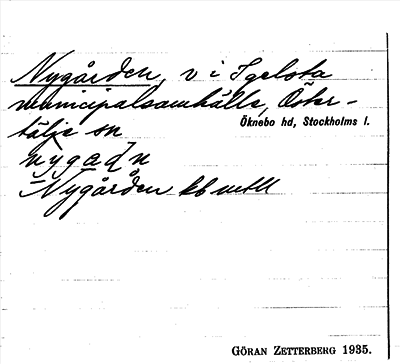 Nygården, v i Igelsta
municipalsamhälle, Öster-
tälje sn
Öknebo hd, Stockholms l.
nygạḍn
Nygården kb
GÖRAN ZETTERBERG 1935.